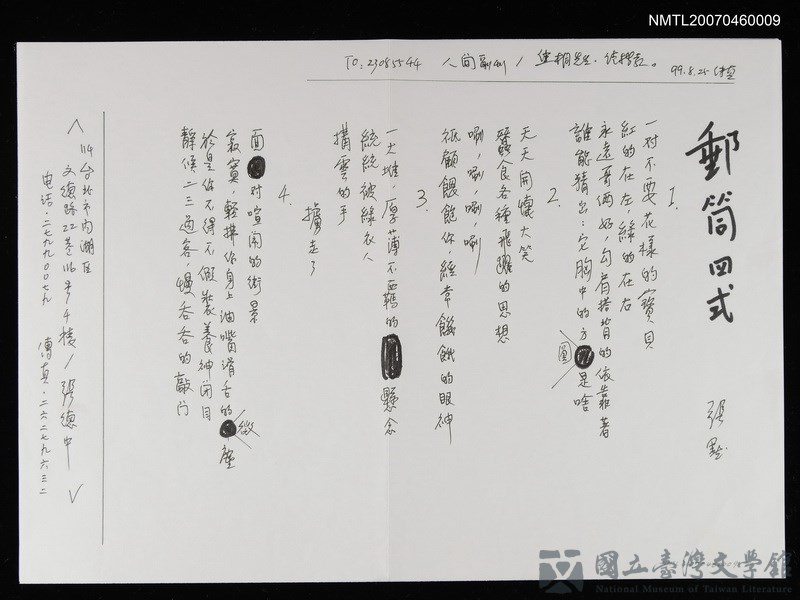 NMTL20070460009
TO:23085544 人间副刊/
99.8.25
郵筒四式
張默
1.
一对不要花樣的寶貝
紅的在左,綠的在右
永遠哥倆好,勾肩搭背的依靠著
誰能猜出:它胸中的方圓是啥
2.
天天開懷大笑
蠶食各種飛躍的思想
唰,唰,唰,唰
祇顧餵飽你,經常饑餓的眼神
3.
一大堆,厚薄不西鞱的懸念
統統被綠衣人
搆雲的手
擄走了
4.
面对喧鬧的街景
寂寞,輕拂你身上油嘴滑舌的微塵
於是你不得不假裝養神闭目
靜候二三過客,慢吞吞的敲门
114台北市內湖区
文德路22巷116号4楼/張德中
电话.二七九九00七九 傳真.二六二七九六三二
國立臺灣文學館
National Museum of Taiwan Literature